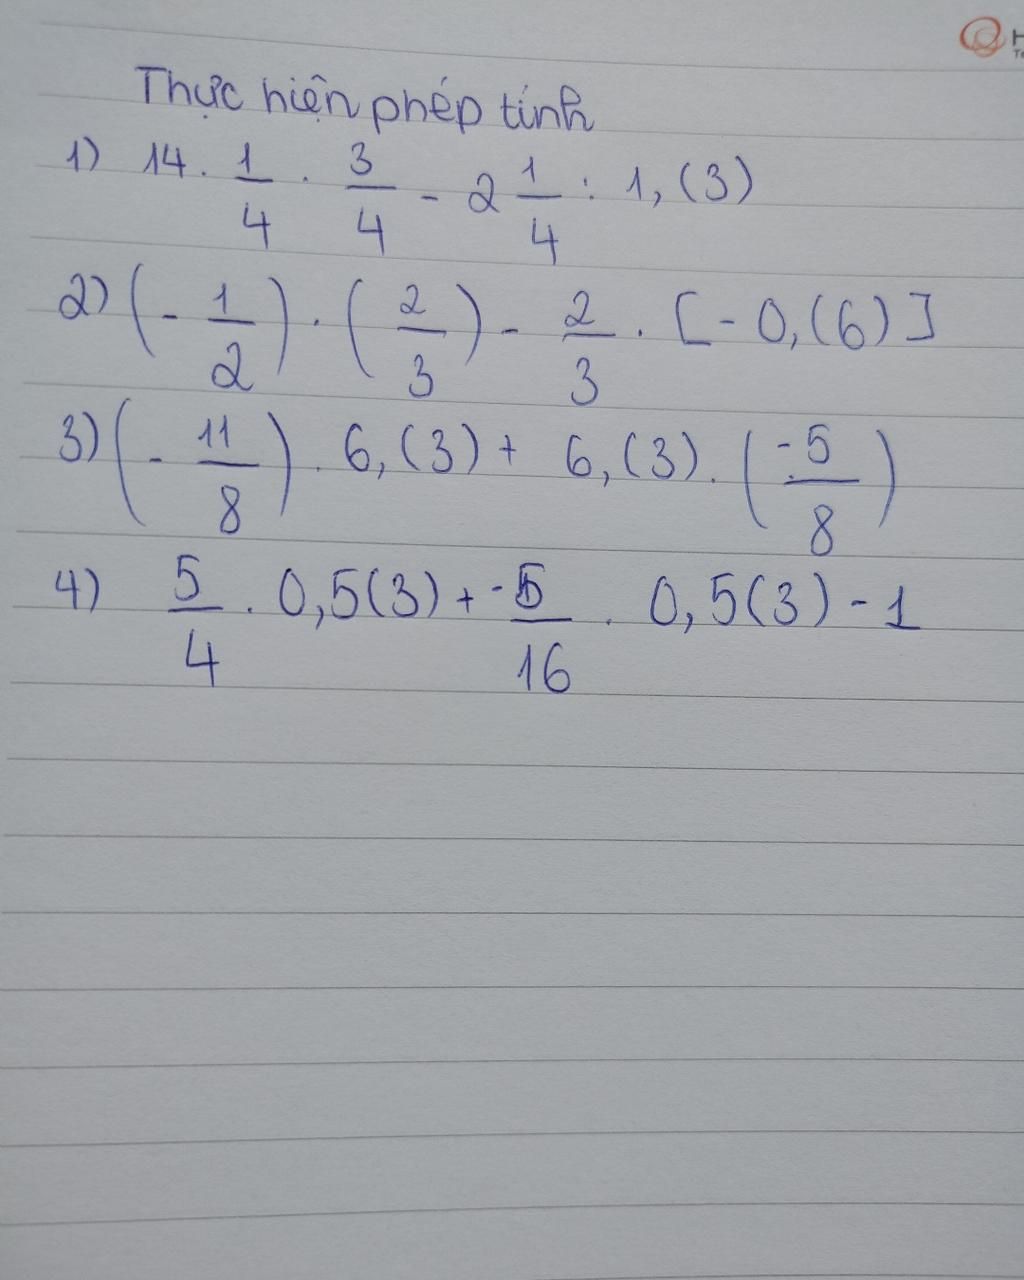 Thực hiện phép tính
1) 14 . 1/4 . 3/4 - 2 1/4 : 1,(3)
2) (- 1/2) . (2/3) - 2/3 . [- 0,(6)]
3) (- 11/8) . 6,(3) + 6,(3) . (-5/8)
4) 5/4 . 0,5(3) + -5/16 . 0,5(3) - 1